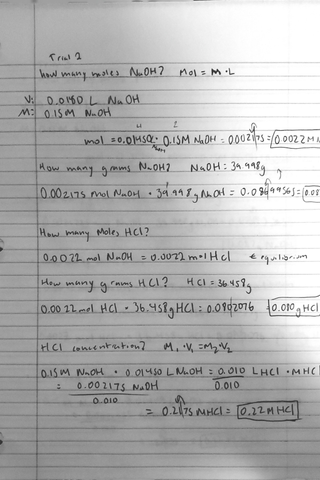 Trial 2
How many moles NaOH? Mol = M · L
V: 0.0150 L NaOH
M: 0.15M NaOH
mol = 0.01450L · 0.15M NaOH = 0.002175 = 0.0022 M
How many grams NaOH? NaOH: 39.998g
0.002175 mol NaOH · 39.998g NaOH = 0.0869956g = 0.08
How many Moles HCl?
0.0022 mol NaOH = 0.0022 mol HCl ← equilibrium
How many grams HCl? HCl = 36.458g
0.0022 mol HCl · 36.458g HCl = 0.0802076 = 0.080g HCl
HCl concentration? M₁ · V₁ = M₂ · V₂
0.15M NaOH · 0.01450 L NaOH = 0.010 L HCl · M HCl
= 0.002175 NaOH 0.010
0.010
= 0.2175 M HCl = 0.22 M HCl